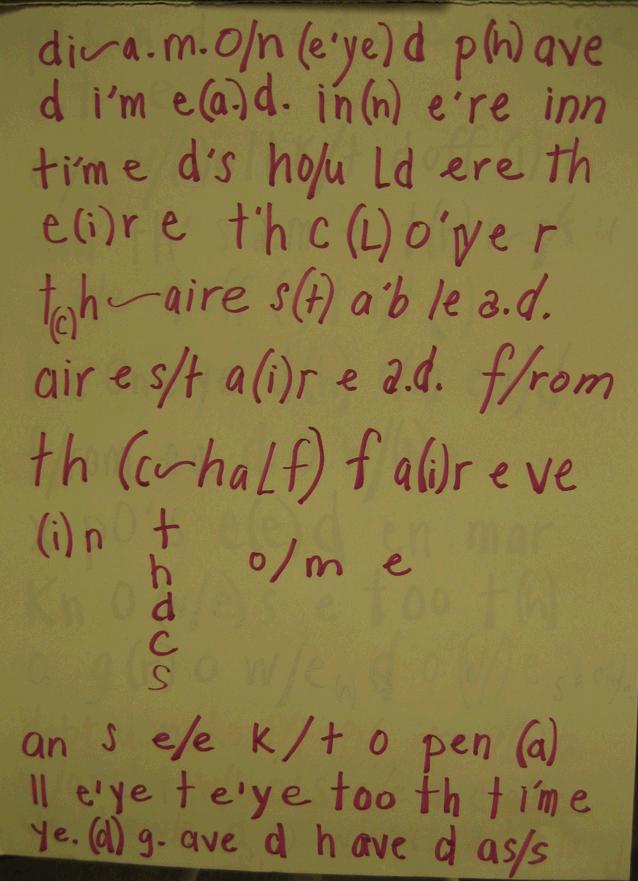 di~a.m.o/n (e'ye) d p(h) ave
d i'm e(a.)d. in(n) e're inn
time d's ho/u Ld ere th
e(i)r e t'h c (L) o'ye r
t(c)h~aire s(t) a'b le a.d.
air e s/t a(i)r e a.d. f/rom
th (c~haLf) f a(i)r e ve
(i)n t o/m e
h
d
c
s
an s e/e k/t o pen (a)
ll e'ye t e'ye too th t i'm e
ye. (d) g. ave d h ave d as/s